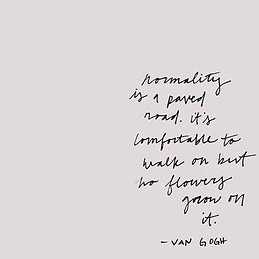 normality
is a paved
road. it's
comfortable to
walk on but
no flowers
grow on
it.
– VAN GOGH